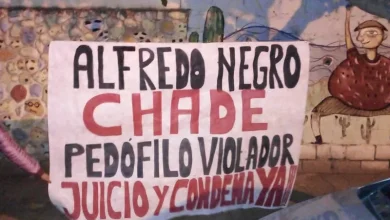 ALFREDO NEGRO
CHADE
PEDÓFILO VIOLADOR
JUICIO Y CONDENA YA!!